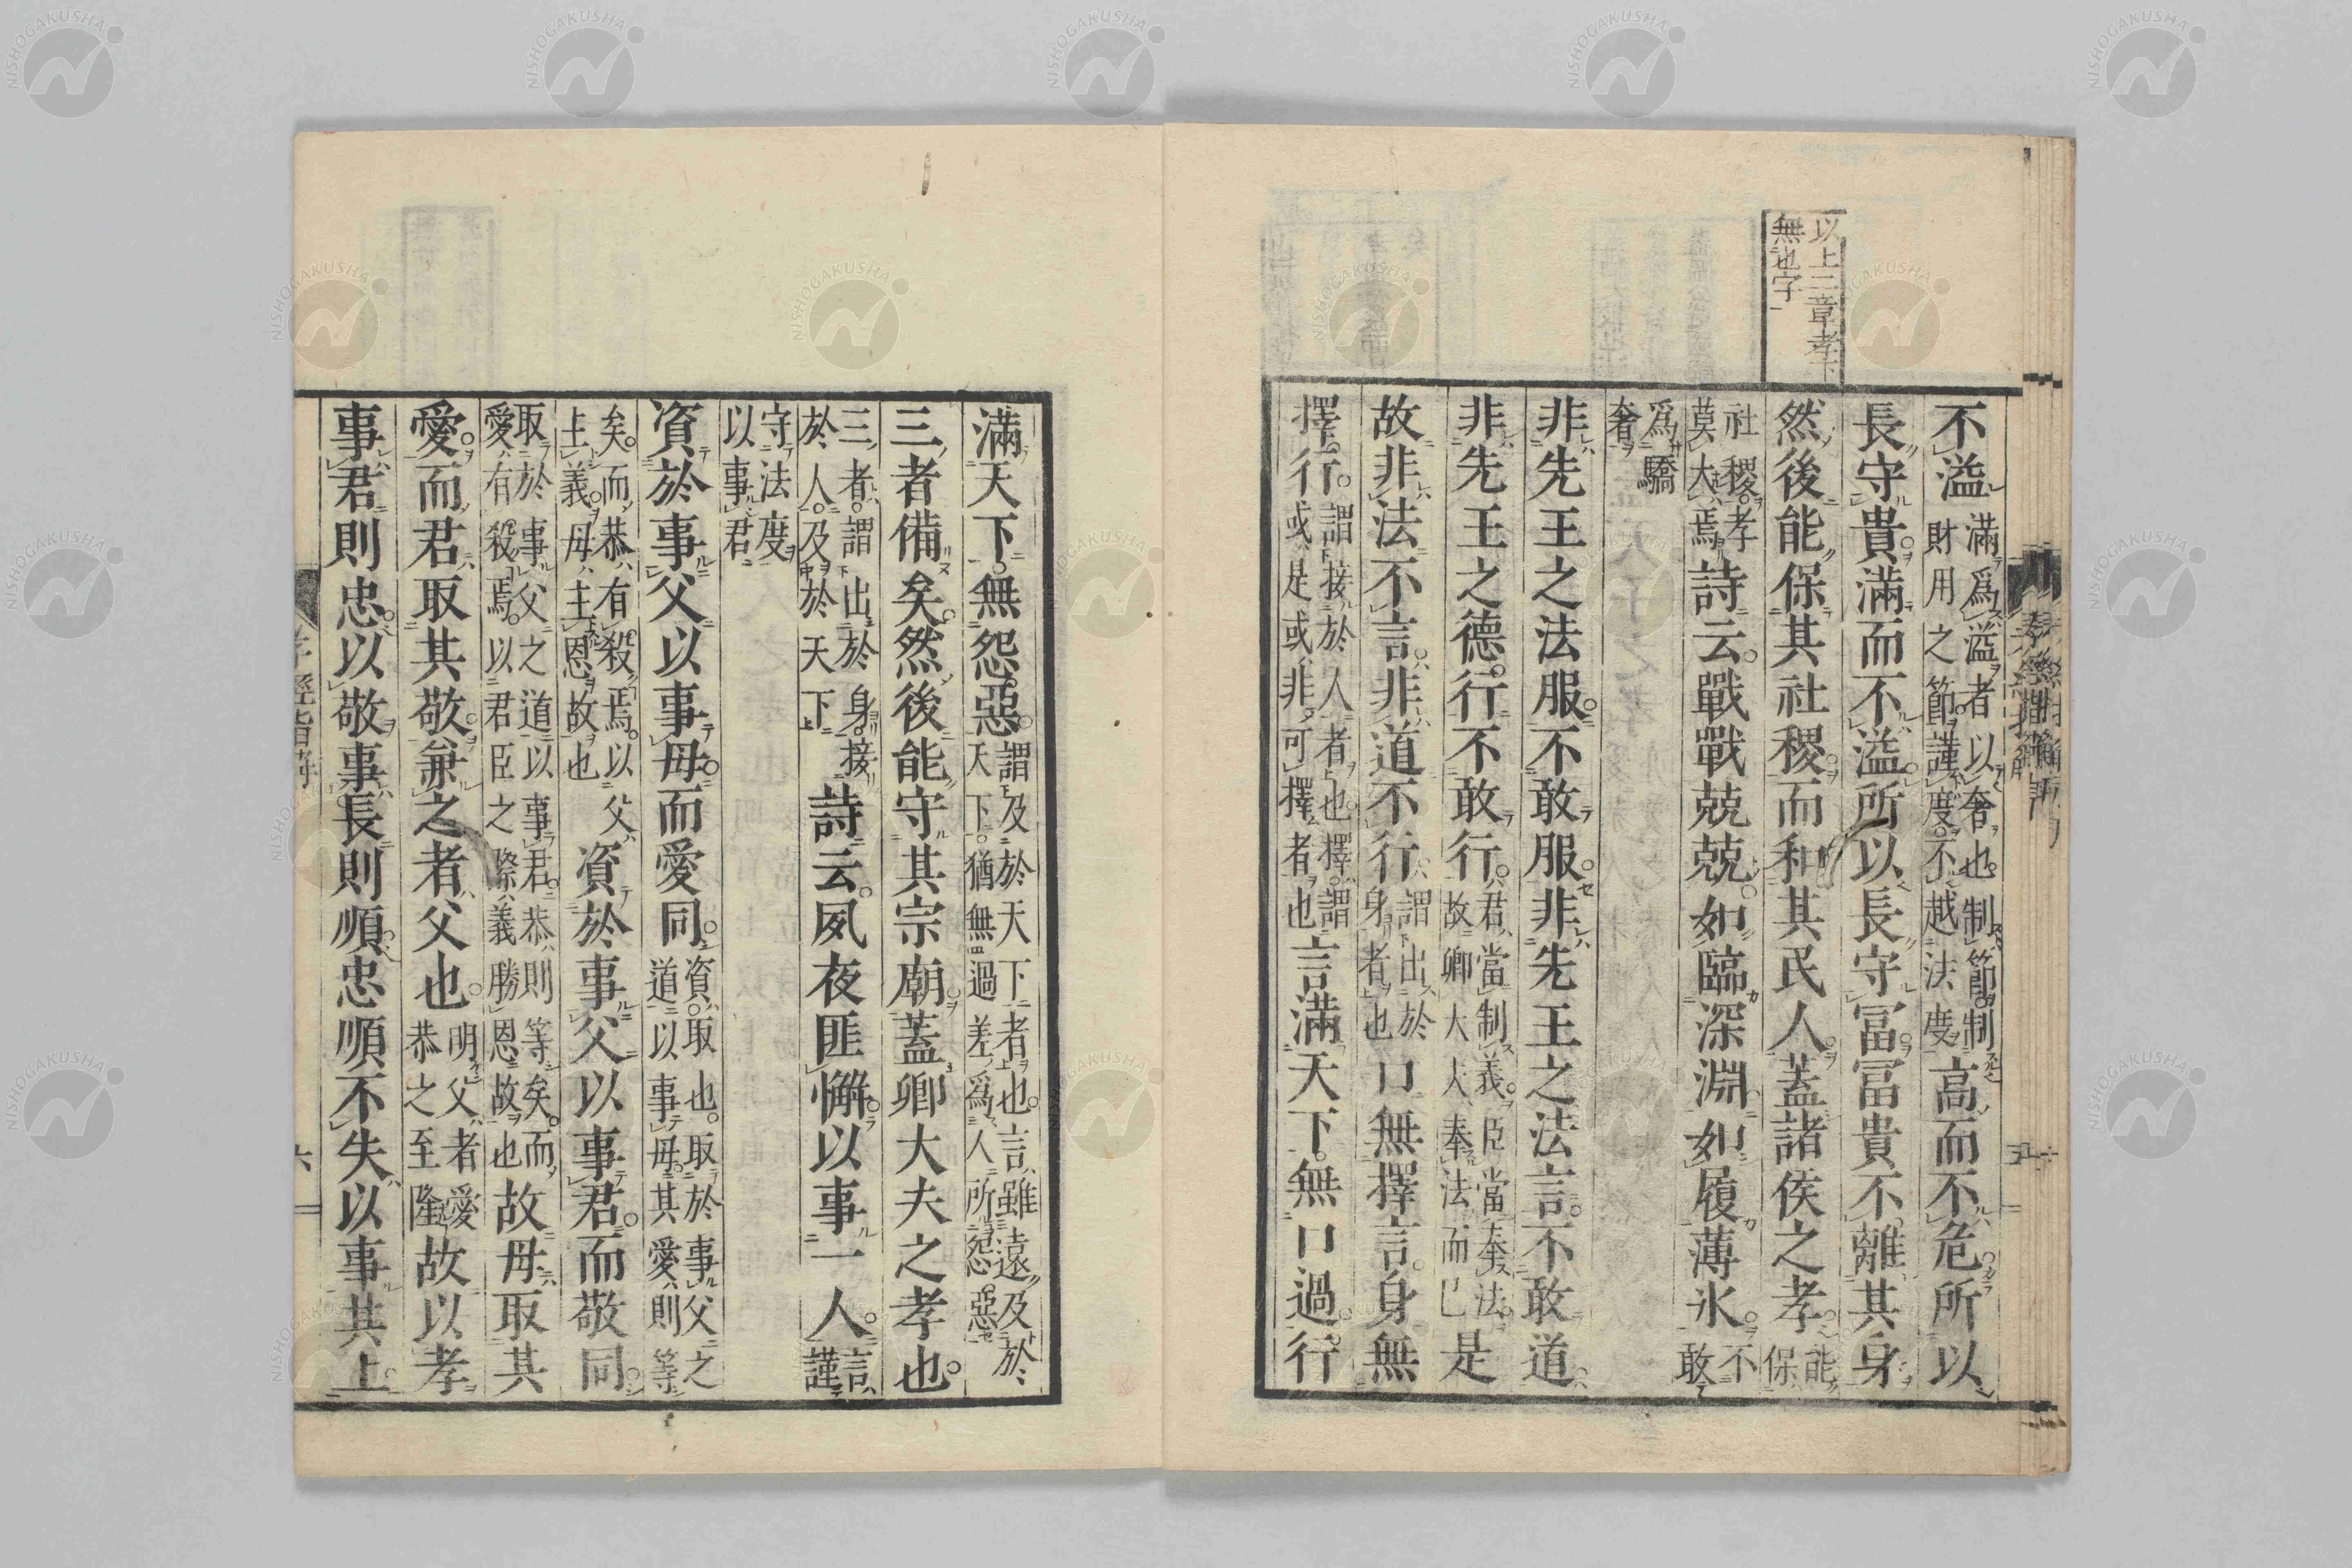 以上三章孝下
無也字
不溢滿爲溢者以奢也制節制財用之節謹度不越法度高而不危所以
長守貴滿而不溢所以長守冨冨貴不離其身
然後能保其社稷而和其民人蓋諸侯之孝能保
社稷孝莫大焉詩云戰戰兢兢如臨深淵如履薄氷不敢
爲驕奢
非先王之法服不敢服非先王之法言不敢道
非先王之德行不敢行君當制義臣當奉法故卿大夫奉法而已是
故非法不言非道不行謂出於身者也口無擇言身無
擇行謂接於人者也擇謂或是或非可擇者也言滿天下無口過行
滿天下無怨惡謂及於天下者也言雖遠及於天下猶無過差爲人所怨惡
三者備矣然後能守其宗廟蓋卿大夫之孝也
三者謂出於身接於人及於天下詩云夙夜匪懈以事一人言謹
守法度以事君
資於事父以事母而愛同資取也取於事父之道以事母其愛則等
矣而恭有殺焉以父主義母主恩故也資於事父以事君而敬同
取於事父之道以事君恭則等矣而愛有殺焉以君臣之際義勝恩故也故母取其
愛而君取其敬兼之者父也明父者愛恭之至隆故以孝
事君則忠以敬事長則順忠順不失以事其上
六
NISHOGAKUSHA